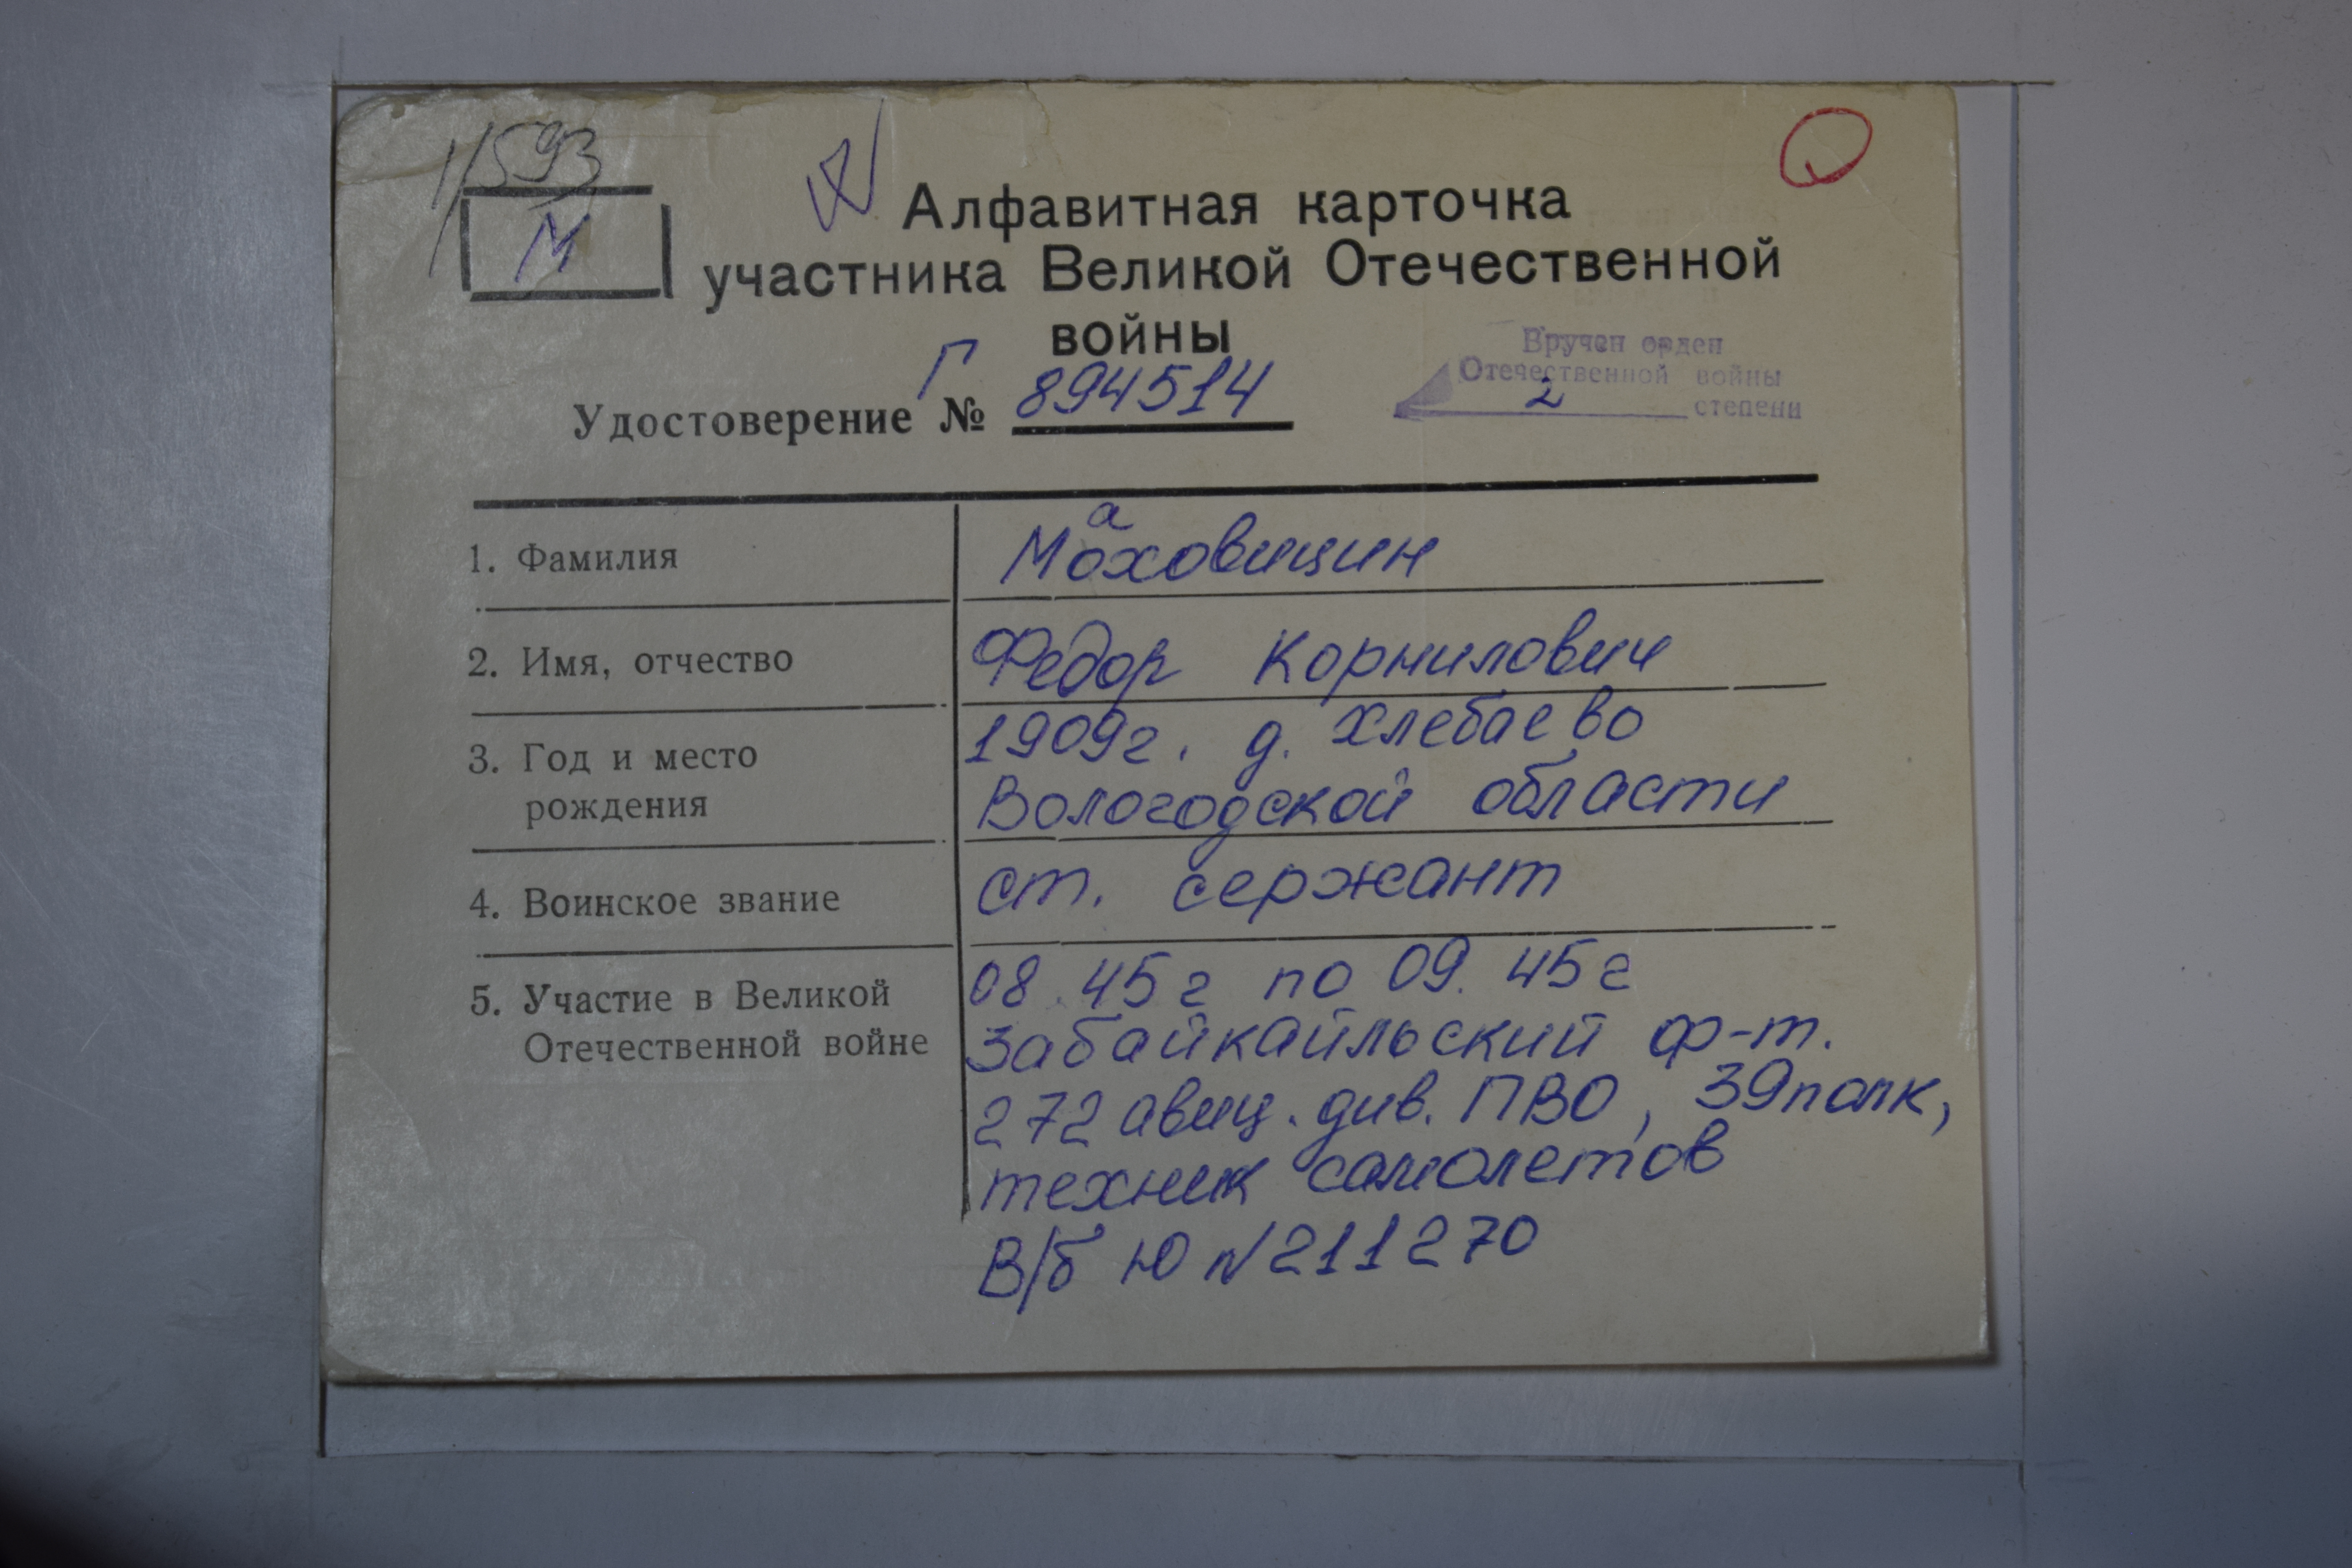 11593
М
Алфавитная карточка
участника Великой Отечественной
войны
Удостоверение Г № 894514
Вручен орден
Отечественной войны
2 степени
1. Фамилия
а
Моховицин
2. Имя, отчество
Федор Корнилович
3. Год и место
рождения
1909г. д. Хлебаево
Вологодской области
4. Воинское звание
ст. сержант
5. Участие в Великой
Отечественной войне
08.45г по 09.45г
Забайкайльский ф-т.
272 авиц. див. ПВО, 39полк,
техник самолетов
В/б Ю №211270